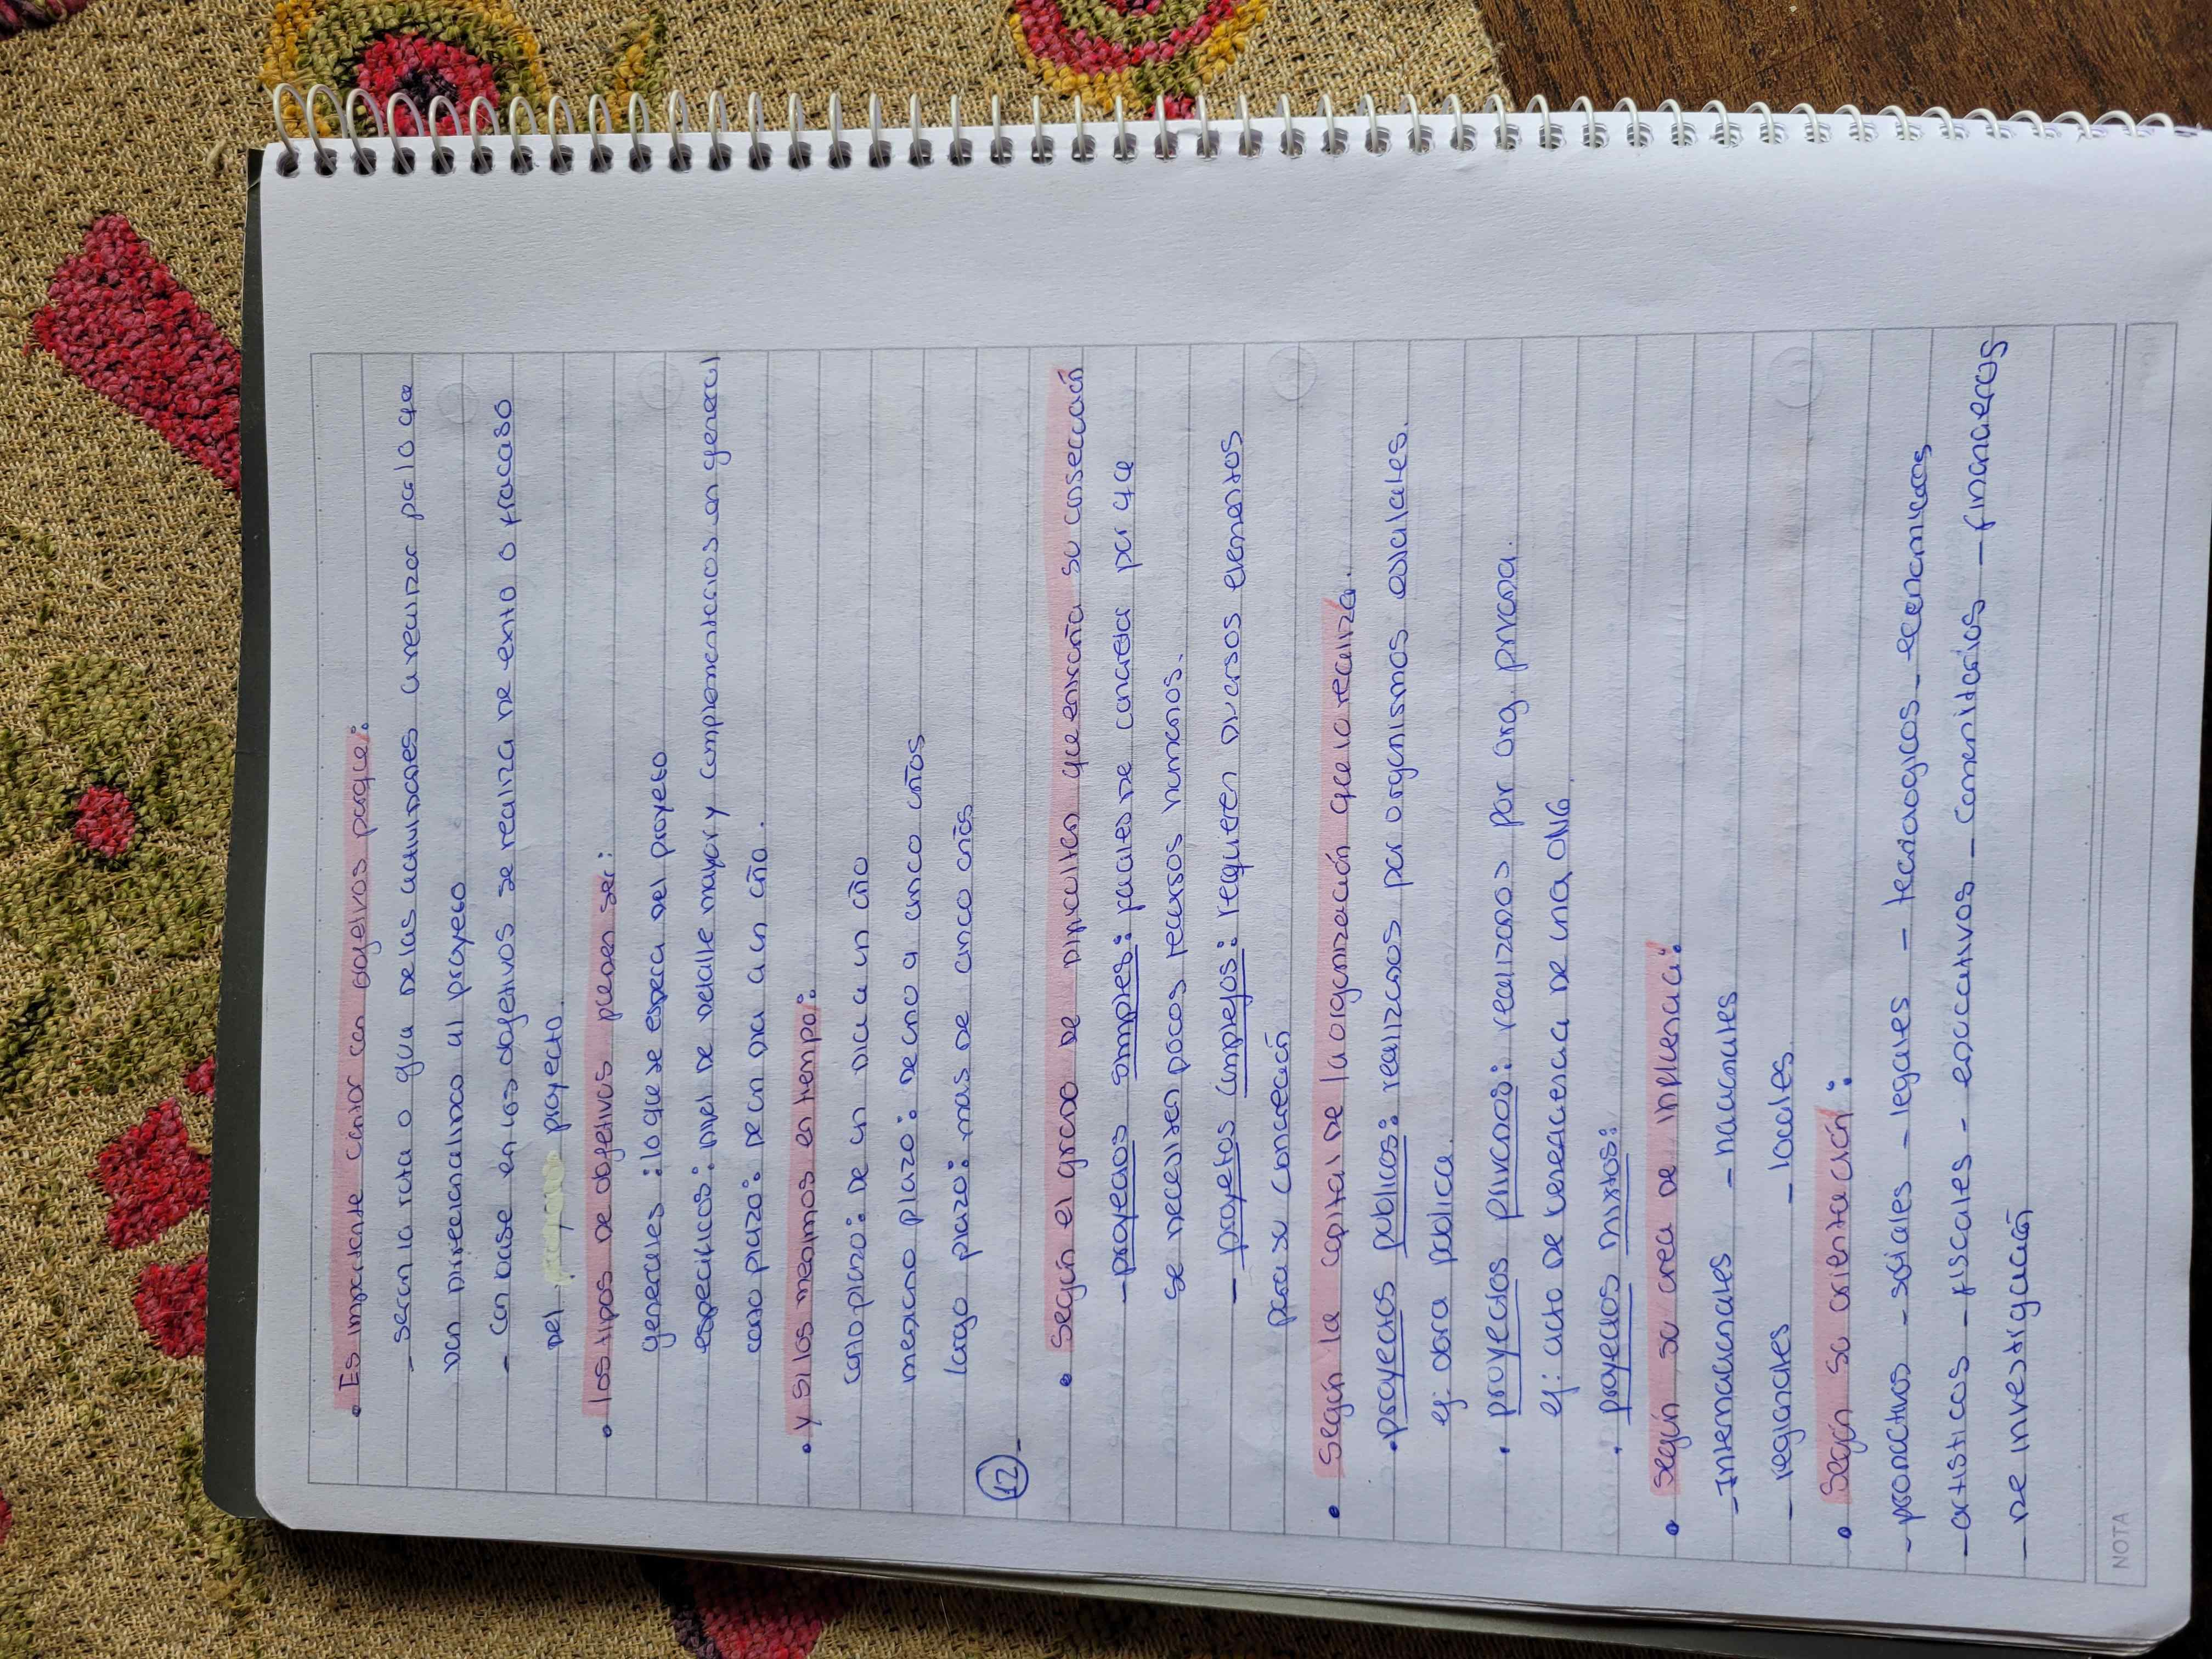 • Es importante contar con objetivos porque:
- seran la ruta o guia de las actividades a realizar por lo que
dan direccionalidad al proyecto
- Con base en los objetivos se realiza de exito o fracaso
del proyecto.
• los tipos de objetivos pueden ser:
generales: lo que se espera del proyecto
especificos: nivel de detalle mayor y complementarios en general
corto plazo: de un dia a un año.
• y si los medimos en tiempo:
corto plazo: de un dia a un año
mediano plazo: de uno a cinco años
largo plazo: mas de cinco años
12-
• Según el grado de dificultad que entraña su consecución
- proyectos simples: faciles de concretar por que
se necesitan pocos recursos humanos.
- proyectos complejos: requieren diversos elementos
para su concreción
• Según la capital de la organización que lo realiza.
• proyectos publicos: realizados por organismos estatales.
ej: obra publica.
• proyectos privados: realizados por org. privada.
ej: acto de beneficencia de una ONG.
• proyectos mixtos:
• según su area de influencia:
- Internacionales - nacionales
- regionales - locales
• Según su orientación:
- productivos - sociales - legales - tecnologicos - economicos
- artisticos - fiscales - educativos - comunitarios - financieros
- de investigación
NOTA